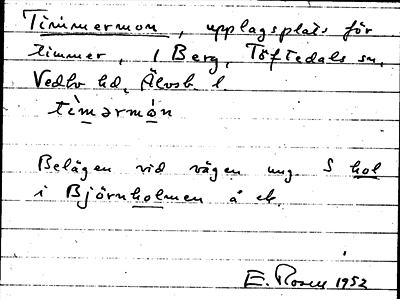 Timmermon, upplagsplats för
timmer, i Berg, Töftedals sn,
Vedbo hd, Älvsb. l.
tìmərmón
Belägen vid vägen ung. S hol
i Björnholmen å ek.
E. Rosen 1952